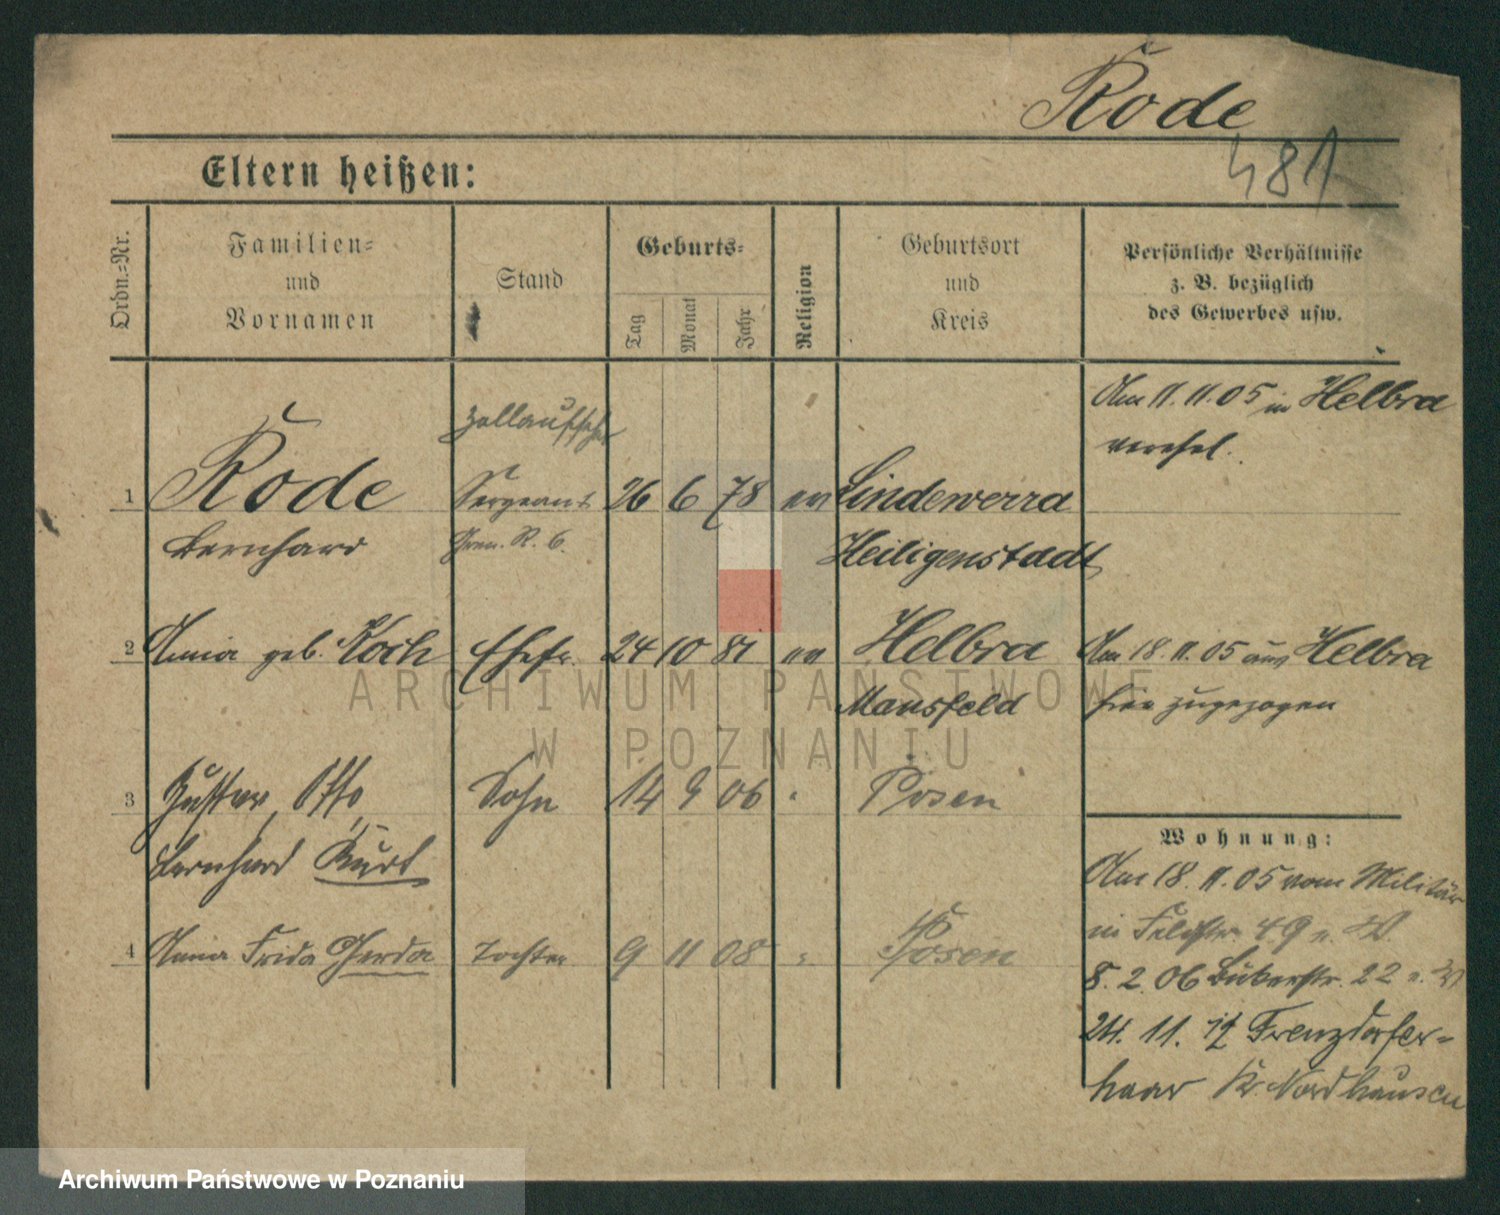 Rode
481
Eltern heißen:
Ordn.-Nr.
Familien-
und
Vornamen
Stand
Geburts-
Tag
Monat
Jahr
Religion
Geburtsort
und
Kreis
Persönliche Verhältnisse
z. B. bezüglich
des Gewerbes usw.
Am 11.11.05 in Helbra
verehel.
Zollaufseher
1 Rode Sergeant 26 6 78 ev Lindewerra
Bernhard Gren. R. 6. Heiligenstadt
2 Anna geb. Koch Ehefr. 24 10 81 ev Helbra Am 18.11.05 aus Helbra
Mansfeld hier zugezogen
3 Gustav, Otto, Sohn 14 9 06 " Posen
Bernhard Kurt
Wohnung:
Am 18.11.05 vom Militär
4 Anna Frida Gerda Tochter 9 11 08 " Posen
in 49
8.2.06 22
24. 11.
haar Kr. Nordhausen
ARCHIWUM PAŃSTWOWE
W POZNANIU
Archiwum Państwowe w Poznaniu